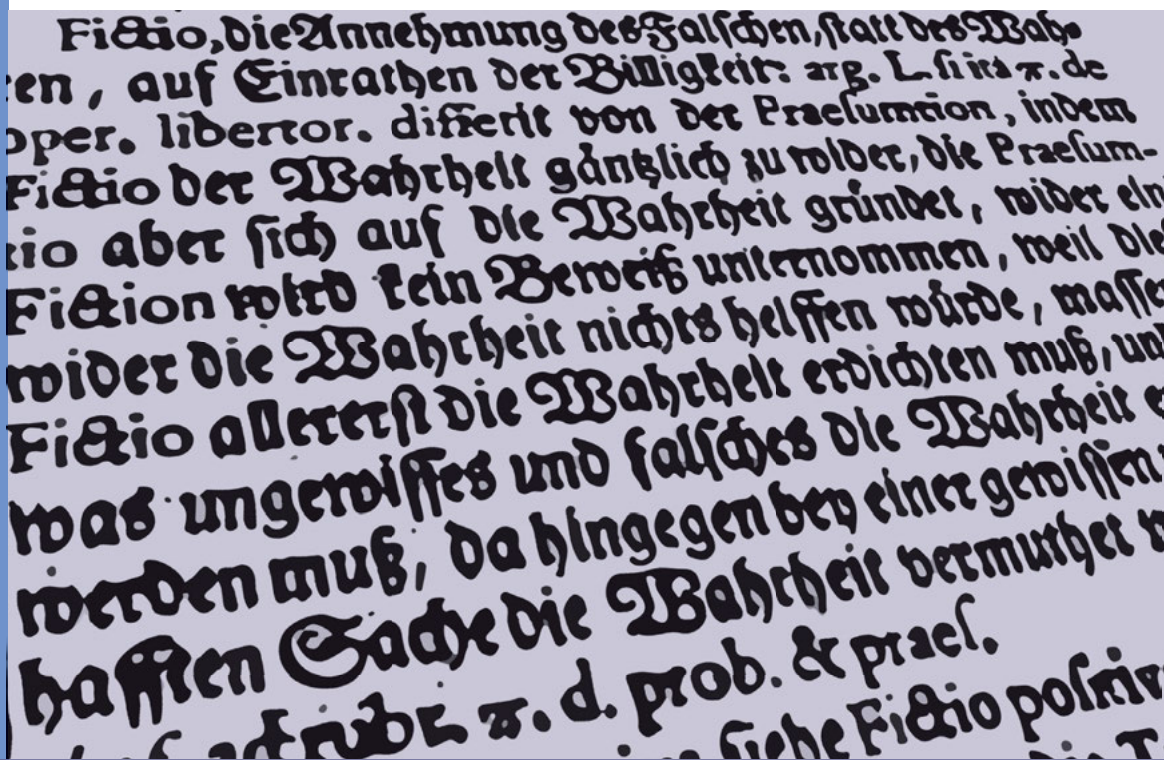 Fictio, die Annehmung des Falschen, statt des Wah-
ren, auf Einrathen der Billigkeit: arg. L. si its π. de
oper. libertor. differit von der Praesumtion, indem
Fictio der Wahrheit gäntzlich zu wider, die Praesum-
tio aber sich auf die Wahrheit gründet, wider ein
Fiction wird kein Beweiß unternommen, weil die
wider die Wahrheit nichts helffen würde, masse
Fictio allererst die Wahrheit erdichten muß, un
was ungewisses und falsches die Wahrheit
werden muß, da hingegen bey einer gewissen
hafften Sache die Wahrheit vermuthet
ad rubr. π. d. prob. & praes.
siehe Fictio